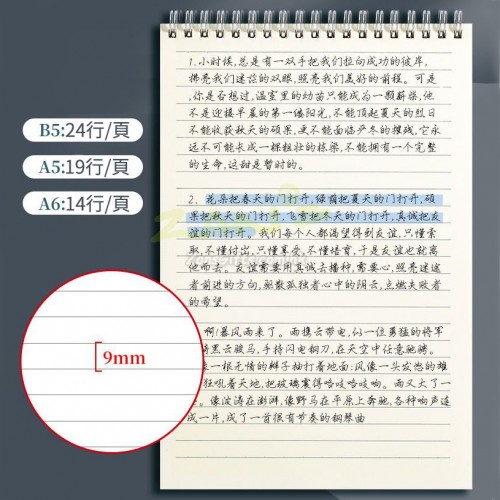 B5:24行/頁
A5:19行/頁
A6:14行/頁
9mm
1.小时候,总是有一双手把我们拉向成功的彼岸,
拂亮我们迷茫的双眼,照亮我们美好的前程。可是
,你是否想过,温室里的幼苗只能成为一颗薪柴,他
不是迎接早晨的第一缕阳光,不能顶起夏天的烈日
不能收获秋天的硕果,更不能面临严冬的摧残,它永
远不可能长成一棵粗壮的栋梁,不能拥有一个完整
的生命,这甜是暂时的。
2、花朵把春天的门打开,绿荫把夏天的门打开,硕
果把秋天的门打开,飞雪把冬天的门打开,真诚把友
谊的门打开。我们每个人都渴望得到友谊,只懂索
取,不懂付出,只懂享受,不懂培育,于是友谊也就离
他而去。友谊需要用真诚去播种,需要心,照亮迷途
者前进的方向,驱散孤独者心中的阴云,点燃失败者
的希望。
啊!暴风雨来了。雨携云带电,似一位勇猛的将军
骑黑云骏马,手持闪电钢刀,在天空中任意驰骋。
一根无情的辫子抽打着地面:风像一头发怒的雄
狂吼着天地,把玻璃震得哈吱哈吱响。雨又大了一
像波涛在澎湃,像野马在平原上奔驰,各种响声连
成一片,成了一首很有节奏的钢琴曲